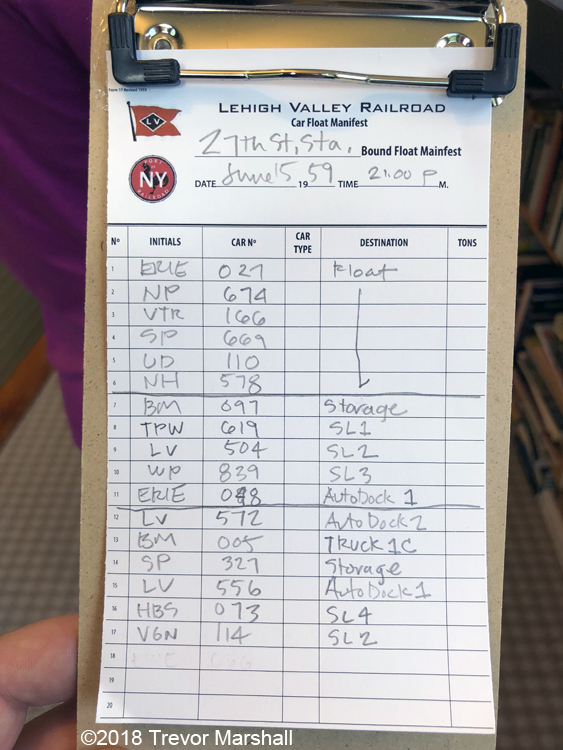 Form 17 Revised 1959
LEHIGH VALLEY RAILROAD
Car Float Manifest
LV
27th St, Sta, Bound Float Mainfest
PORT OF NY RAILROAD
DATE June 5, 1959 TIME 21:00 P M.
Nº INITIALS CAR Nº CAR TYPE DESTINATION TONS
1 ERIE 027 Float
2 NP 674
3 VTR 166
4 SP 669
5 UD 110
6 NH 578
7 BM 697 Storage
8 TPW 619 SL1
9 LV 504 SL2
10 WP 839 SL3
11 ERIE AutoDock 1
12 LV 572 AutoDock2
13 BM 005 Truck 1C
14 SP 327 Storage
15 LV 556 AutoDock1
16 HBS 073 SL4
17 VGN 114 SL2
18
19
20
©2018 Trevor Marshall